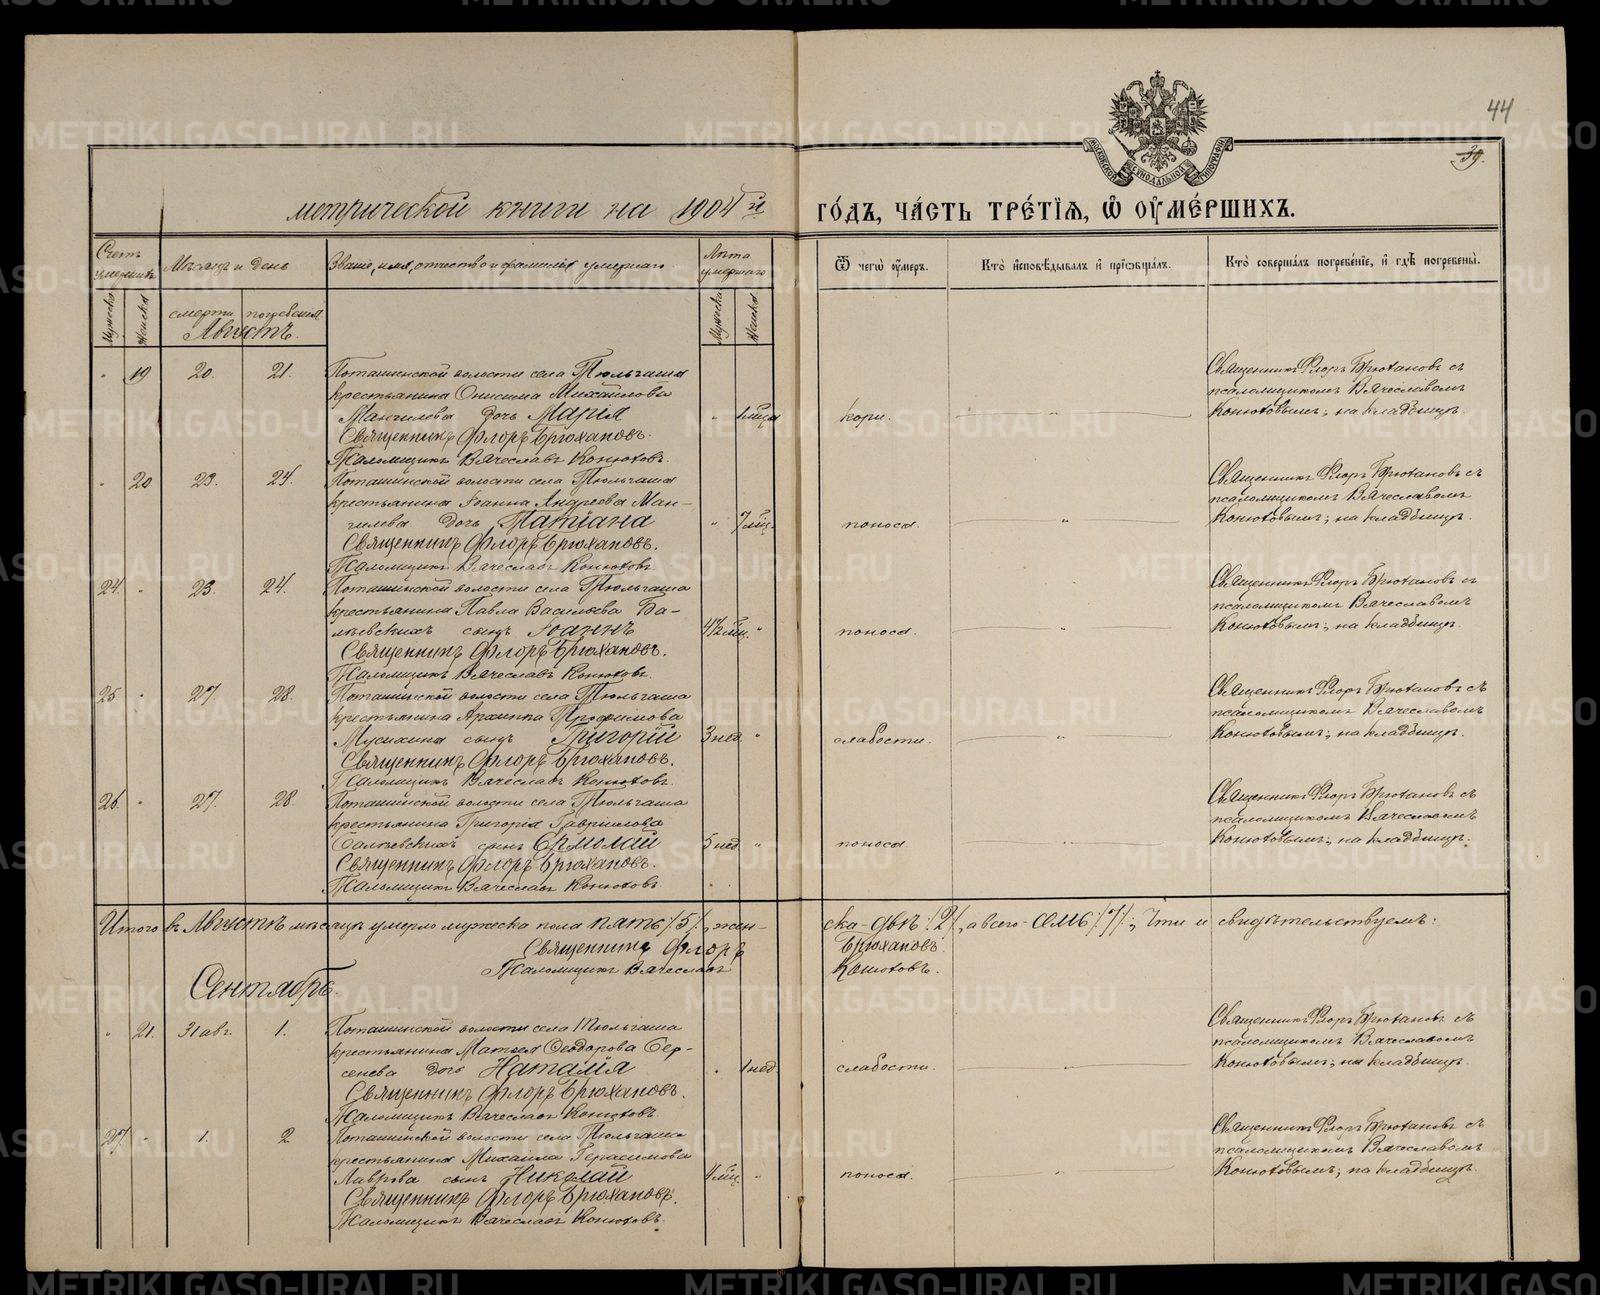 METRIKI.GASO-URAL.RU
44
39.
МОСКОВСКОЙ СѴНОДАЛЬНОЙ ТИПОГРАФІИ
метрической книги на 1904й
ГО́ДЪ, ЧА́СТЬ ТРЕ́ТІѦ, Ѽ ОУ҆МЕ́РШИХЪ.
Счетъ умершихъ
Мѣсяцъ и день
Званіе, имя, отчество и фамилія умершаго.
Лѣта умершаго
Ѿ чегѡ̀ оу҆́меръ.
Кто̀ и҆сповѣ́дывалъ и҆ прїѡбща́лъ.
Кто̀ соверша́лъ погребе́нїе, и҆ гдѣ̀ погребены̀.
Мужеска
Женска
смерти
погребенія
Мужеска
Женска
Августъ.
" 19 20. 21.
Поташинской волости села Тюльгаша
крестьянина Онисима Михаилова
Мангилева дочь Марія " 1 мѣсяца кори. "
Священникъ Флоръ Брюхановъ.
Псаломщикъ Вячеславъ Конюховъ.
Священникъ Флоръ Брюхановъ съ
псаломщикомъ Вячеславомъ
Конюховымъ; на кладбищѣ.
" 20 23. 24.
Поташинской волости села Тюльгаша
крестьянина Іоанна Андреева Ман-
гилева дочь Татіана " 7 мѣц. поноса. "
Священникъ Флоръ Брюхановъ.
Псаломщикъ Вячеславъ Конюховъ.
Священникъ Флоръ Брюхановъ съ
псаломщикомъ Вячеславомъ
Конюховымъ; на кладбищѣ.
24. " 23. 24.
Поташинской волости села Тюльгаша
крестьянина Павла Васильева Ба-
лѣевскихъ сынъ Іоаннъ 4½ мѣц. " поноса. "
Священникъ Флоръ Брюхановъ.
Псаломщикъ Вячеславъ Конюховъ.
Священникъ Флоръ Брюхановъ съ
псаломщикомъ Вячеславомъ
Конюховымъ; на кладбищѣ.
25. " 27 28.
Поташинской волости села Тюльгаша
крестьянина Архиппа Трофимова
Мусихина сынъ Григорій 3 нед. " слабости. "
Священникъ Флоръ Брюхановъ.
Псаломщикъ Вячеславъ Конюховъ.
Священникъ Флоръ Брюхановъ съ
псаломщикомъ Вячеславомъ
Конюховымъ; на кладбищѣ.
26. " 27. 28.
Поташинской волости села Тюльгаша
крестьянина Григорія Гавриилова
сынъ Ермолай 5 нед. " поноса. "
Священникъ Флоръ Брюхановъ.
Псаломщикъ Вячеславъ Конюховъ.
Священникъ Флоръ Брюхановъ съ
псаломщикомъ Вячеславомъ
Конюховымъ; на кладбищѣ.
Итого въ Августѣ мѣсяцѣ умерло мужеска пола пять /5/, жен-
ска - двѣ /2/, а всего - семь /7/; Чти и свидѣтельствуемъ:
Священникъ Флоръ Брюхановъ.
Псаломщикъ Вячеславъ Конюховъ.
Сентябрь.
" 21. 31 авг. 1.
Поташинской волости села Тюльгаша
крестьянина Матвея Ѳеодорова Сер-
генева дочь Наталія " 1 нед. слабости. "
Священникъ Флоръ Брюхановъ.
Псаломщикъ Вячеславъ Конюховъ.
Священникъ Флоръ Брюхановъ съ
псаломщикомъ Вячеславомъ
Конюховымъ; на кладбищѣ.
27. " 1. 2.
Поташинской волости села Тюльгаша
крестьянина Михаила Герасимова
Лаврова сынъ Николай 4 мѣц. " поноса. "
Священникъ Флоръ Брюхановъ.
Псаломщикъ Вячеславъ Конюховъ.
Священникъ Флоръ Брюхановъ съ
псаломщикомъ Вячеславомъ
Конюховымъ; на кладбищѣ.